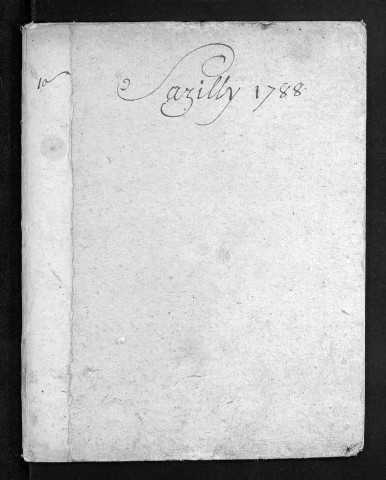 10
Sazilly 1788